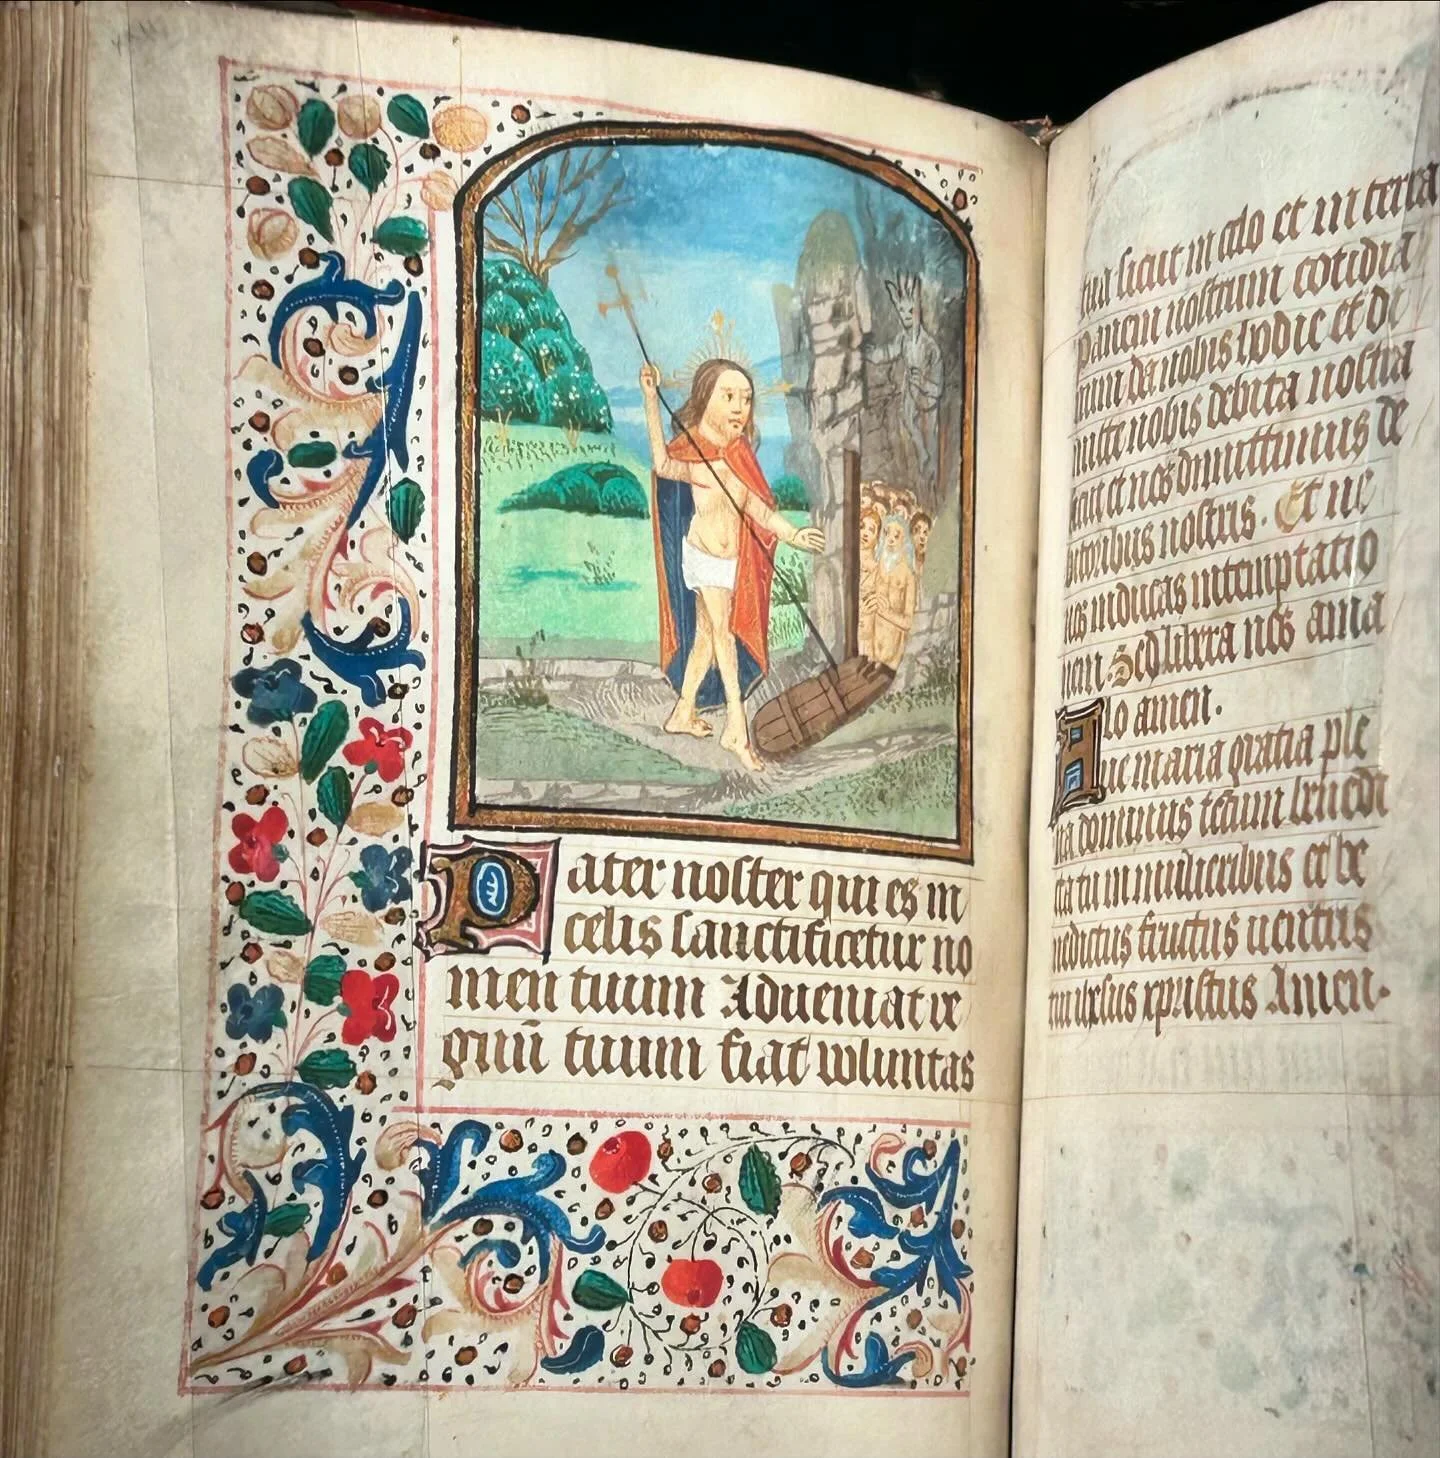 Pater noster qui es in
celis sanctificetur no
men tuum Adueniat re
gnū tuum fiat voluntas
tua sicut in celo et in terra
Panem nostrum cotidia
num da nobis hodie et di
mitte nobis debita nostra
sicut et nos dimittimus de
bitoribus nostris. Et ne
nos inducas intemptatio
nem. Sed libera nos ama
lo amen.
Aue maria gratia ple
na dominus tecum benedi
cta tu in mulieribus et be
nedictus fructus uentris
tui ihesus xpristus Amen.